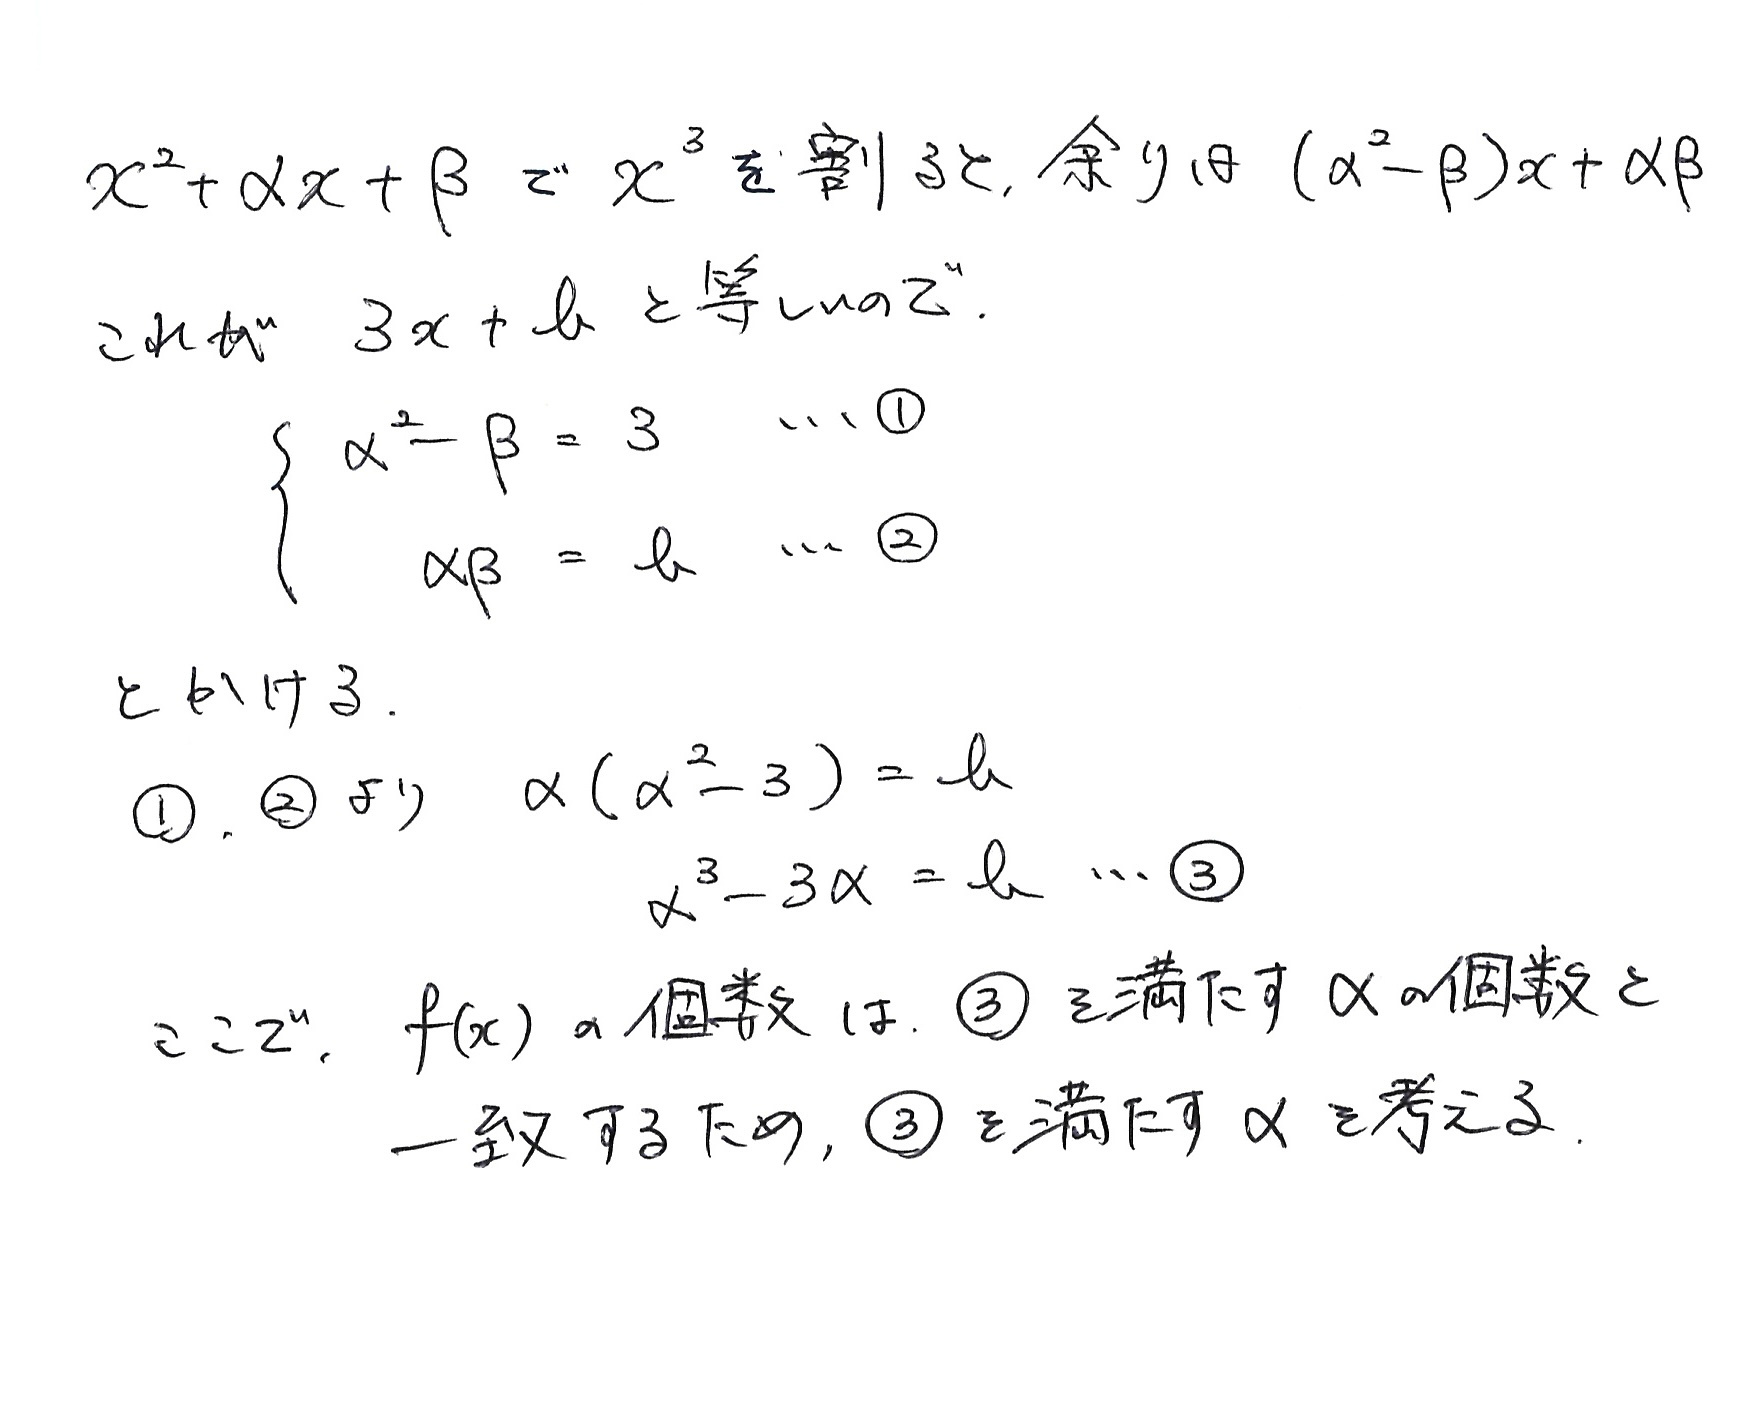 x²+αx+β で x³ を割ると, 余りは (α²-β)x+αβ
これが 3x+b と等しいので.
α²-β = 3 … ①
αβ = b … ②
とかける.
①, ② より α(α²-3) = b
α³-3α = b … ③
ここで, f(x) の個数は, ③ を満たす α の個数と
一致するため, ③ を満たす α を考える.